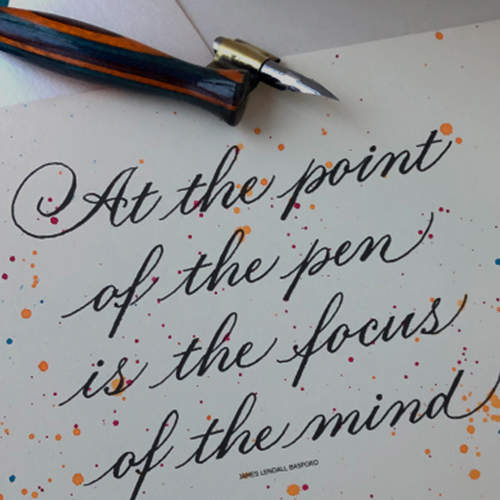 At the point
of the pen
is the focus
of the mind
JAMES LENDALL BASFORD